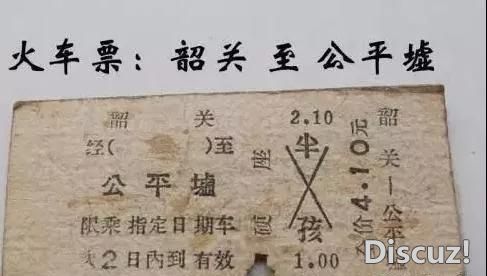 火车票：韶关至公平墟
韶 关
经( )至
公平墟
限乘指定日期车
2日内到有效
硬座
2.10
半
孩
1.00
全价4.10元
韶关—公平
Discuz!